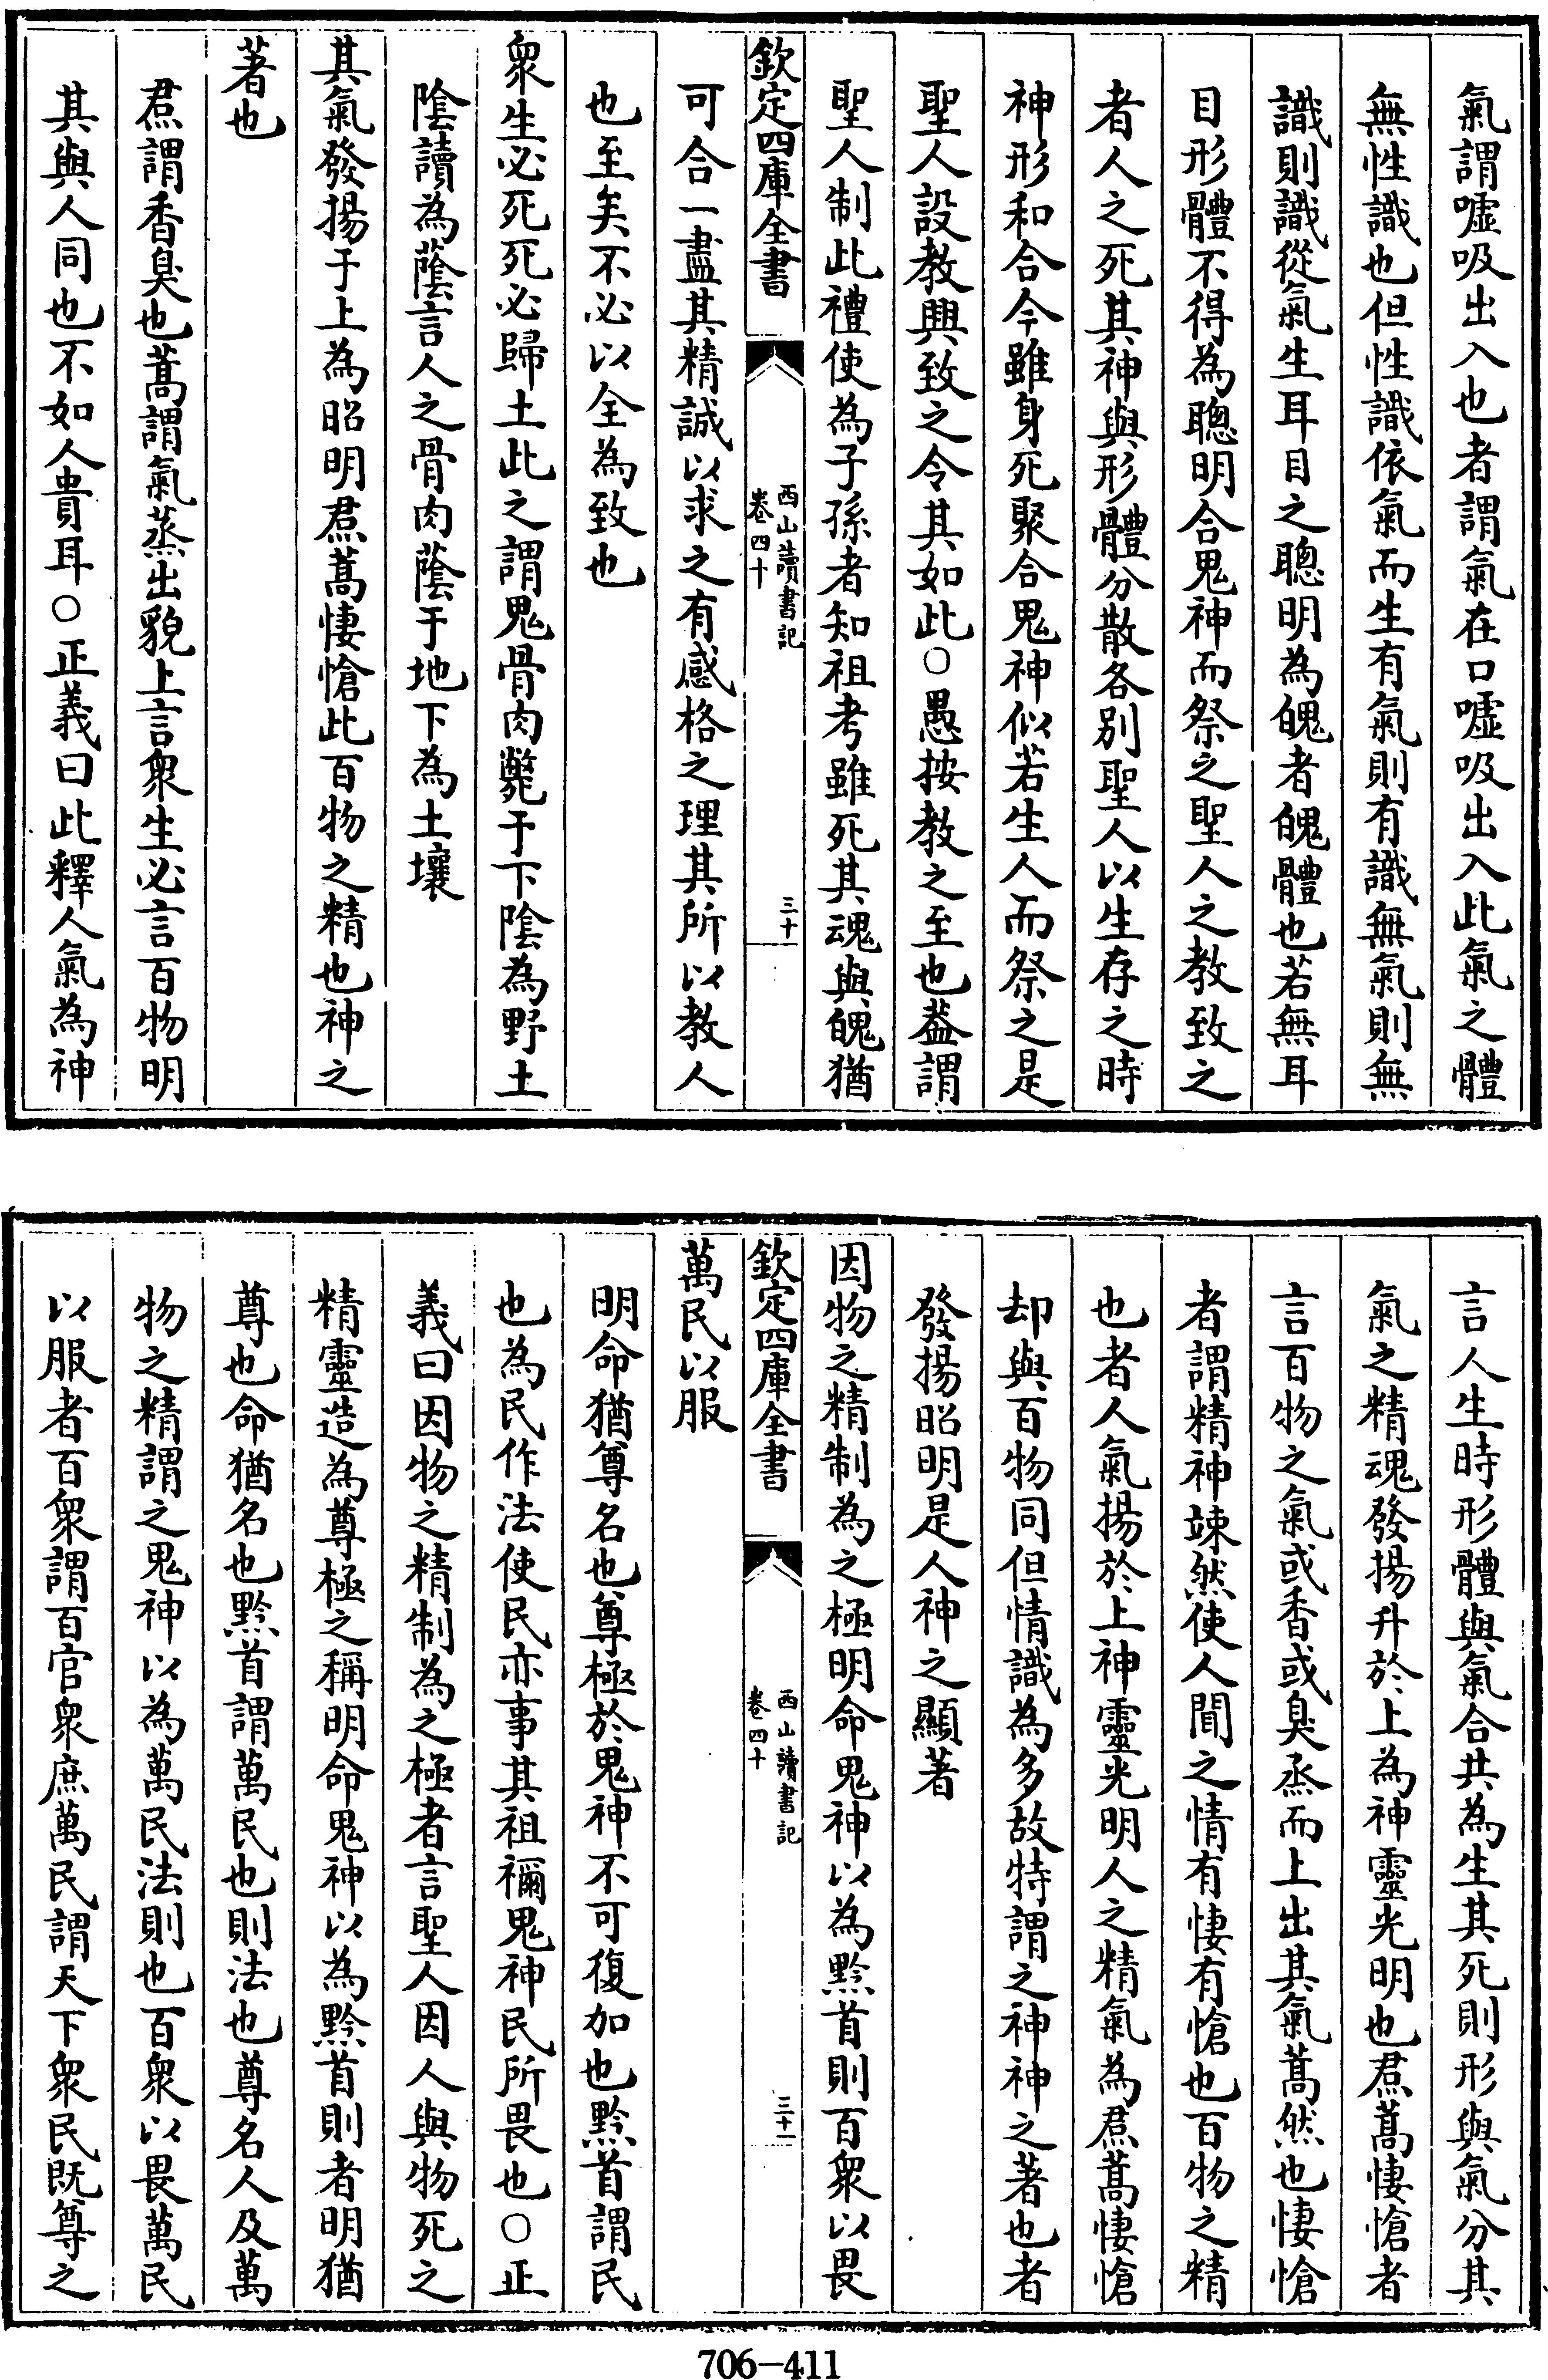 氣謂噓吸出入也者謂氣在口噓吸出入此氣之體
無性識也但性識依氣而生有氣則有識無氣則無
識則識從氣生耳目之聰明為魄者魄體也若無耳
目形體不得為聰明合鬼神而祭之聖人之教致之
者人之死其神與形體分散各別聖人以生存之時
神形和合今雖身死聚合鬼神似若生人而祭之是
聖人設教興致之令其如此○愚按教之至也葢謂
聖人制此禮使為子孫者知祖考雖死其魂與魄猶
欽定四庫全書
西山讀書記
卷四十
三十
可合一盡其精誠以求之有感格之理其所以教人
也至矣不必以全為致也
衆生必死死必歸土此之謂鬼骨肉斃于下陰為野土
陰讀為蔭言人之骨肉蔭于地下為土壤
其氣發揚于上為昭明焄蒿悽愴此百物之精也神之
著也
焄謂香臭也蒿謂氣蒸出貌上言衆生必言百物明
其與人同也不如人貴耳○正義曰此釋人氣為神
言人生時形體與氣合共為生其死則形與氣分其
氣之精魂發揚升於上為神靈光明也焄蒿悽愴者
言百物之氣或香或臭烝而上出其氣蒿然也悽愴
者謂精神竦然使人聞之情有悽有愴也百物之精
也者人氣揚於上神靈光明人之精氣為焄蒿悽愴
却與百物同但情識為多故特謂之神神之著也者
發揚昭明是人神之顯著
因物之精制為之極明命鬼神以為黔首則百衆以畏
欽定四庫全書
西山讀書記
卷四十
三十一
萬民以服
明命猶尊名也尊極於鬼神不可復加也黔首謂民
也為民作法使民亦事其祖禰鬼神民所畏也○正
義曰因物之精制為之極者言聖人因人與物死之
精靈造為尊極之稱明命鬼神以為黔首則者明猶
尊也命猶名也黔首謂萬民也則法也尊名人及萬
物之精謂之鬼神以為萬民法則也百衆以畏萬民
以服者百衆謂百官衆庶萬民謂天下衆民既尊之
706-411